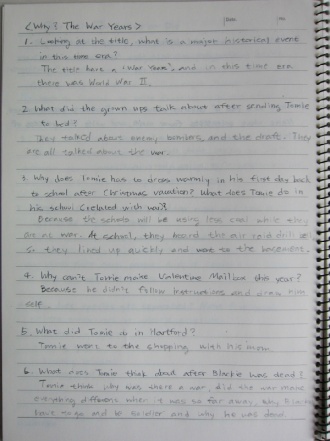 Date No
<Why? The War Years>
1. Looking at the title, what is a major historical event
in this time era?
The title has a "War Years", and in this time era
there was World War II.
2. What did the grown ups talk about after sending Tomie
to bed?
They talked about enemy bombers, and the draft. They
are all talked about the war.
3. Why does Tomie has to dress warmly in his first day back
to school after Christmas vacation? What does Tomie do in
his school (related with war)?
Because the schools will be using less coal while they
are at war. At school, they heard the air raid drill
so they lined up quickly and went to the basement.
4. Why can't Tomie make Valentine Mailbox this year?
Because he didn't follow instructions and draw him
self.
5. What did Tomie do in Hartford?
Tomie went to the shopping with his mom.
6. What does Tomie think about after Blackie was dead?
Tomie think why was there a war, did the war make
everything different when it was so far away, why
have to go and be soldier and why he was dead.